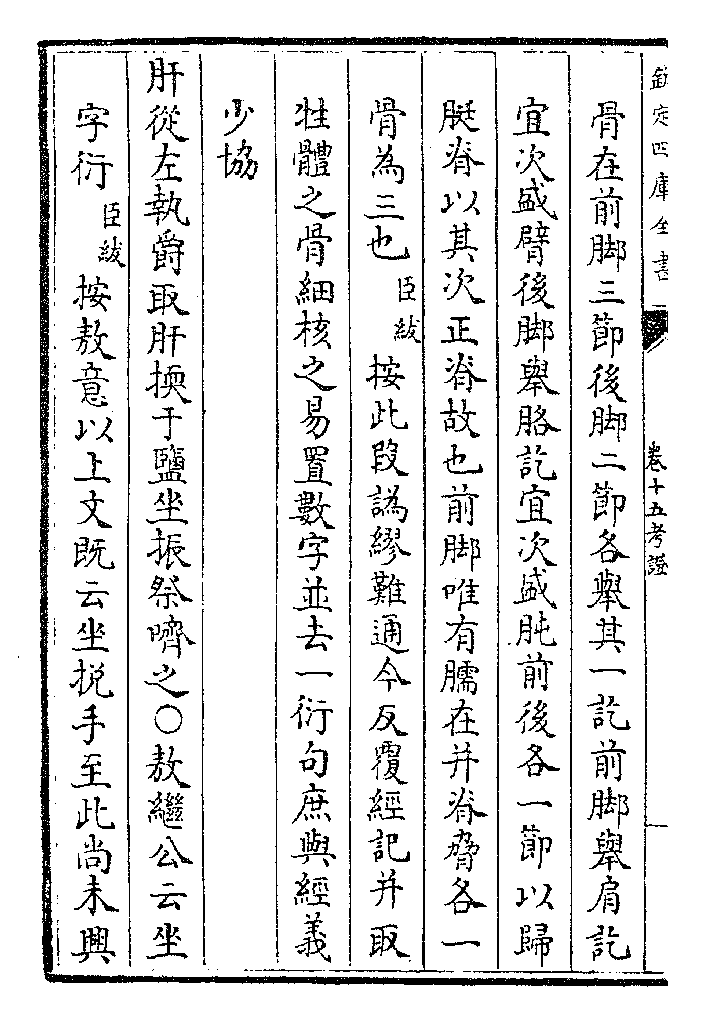 欽定四庫全書
卷十五考證
骨在前脚三節後脚二節各舉其一訖前脚舉肩訖
宜次盛臂後脚舉胳訖宜次盛肫前後各一節以歸
脡脊以其次正脊故也前脚唯有臑在并脊脅各一
骨為三也臣紱按此段譌繆難通今反覆經記并取
牲體之骨細核之易置數字並去一衍句庶與經義
少協
肝從左執爵取肝擩于鹽坐振祭嚌之○敖繼公云坐
字衍臣紱按敖意以上文既云坐挩手至此尚未興